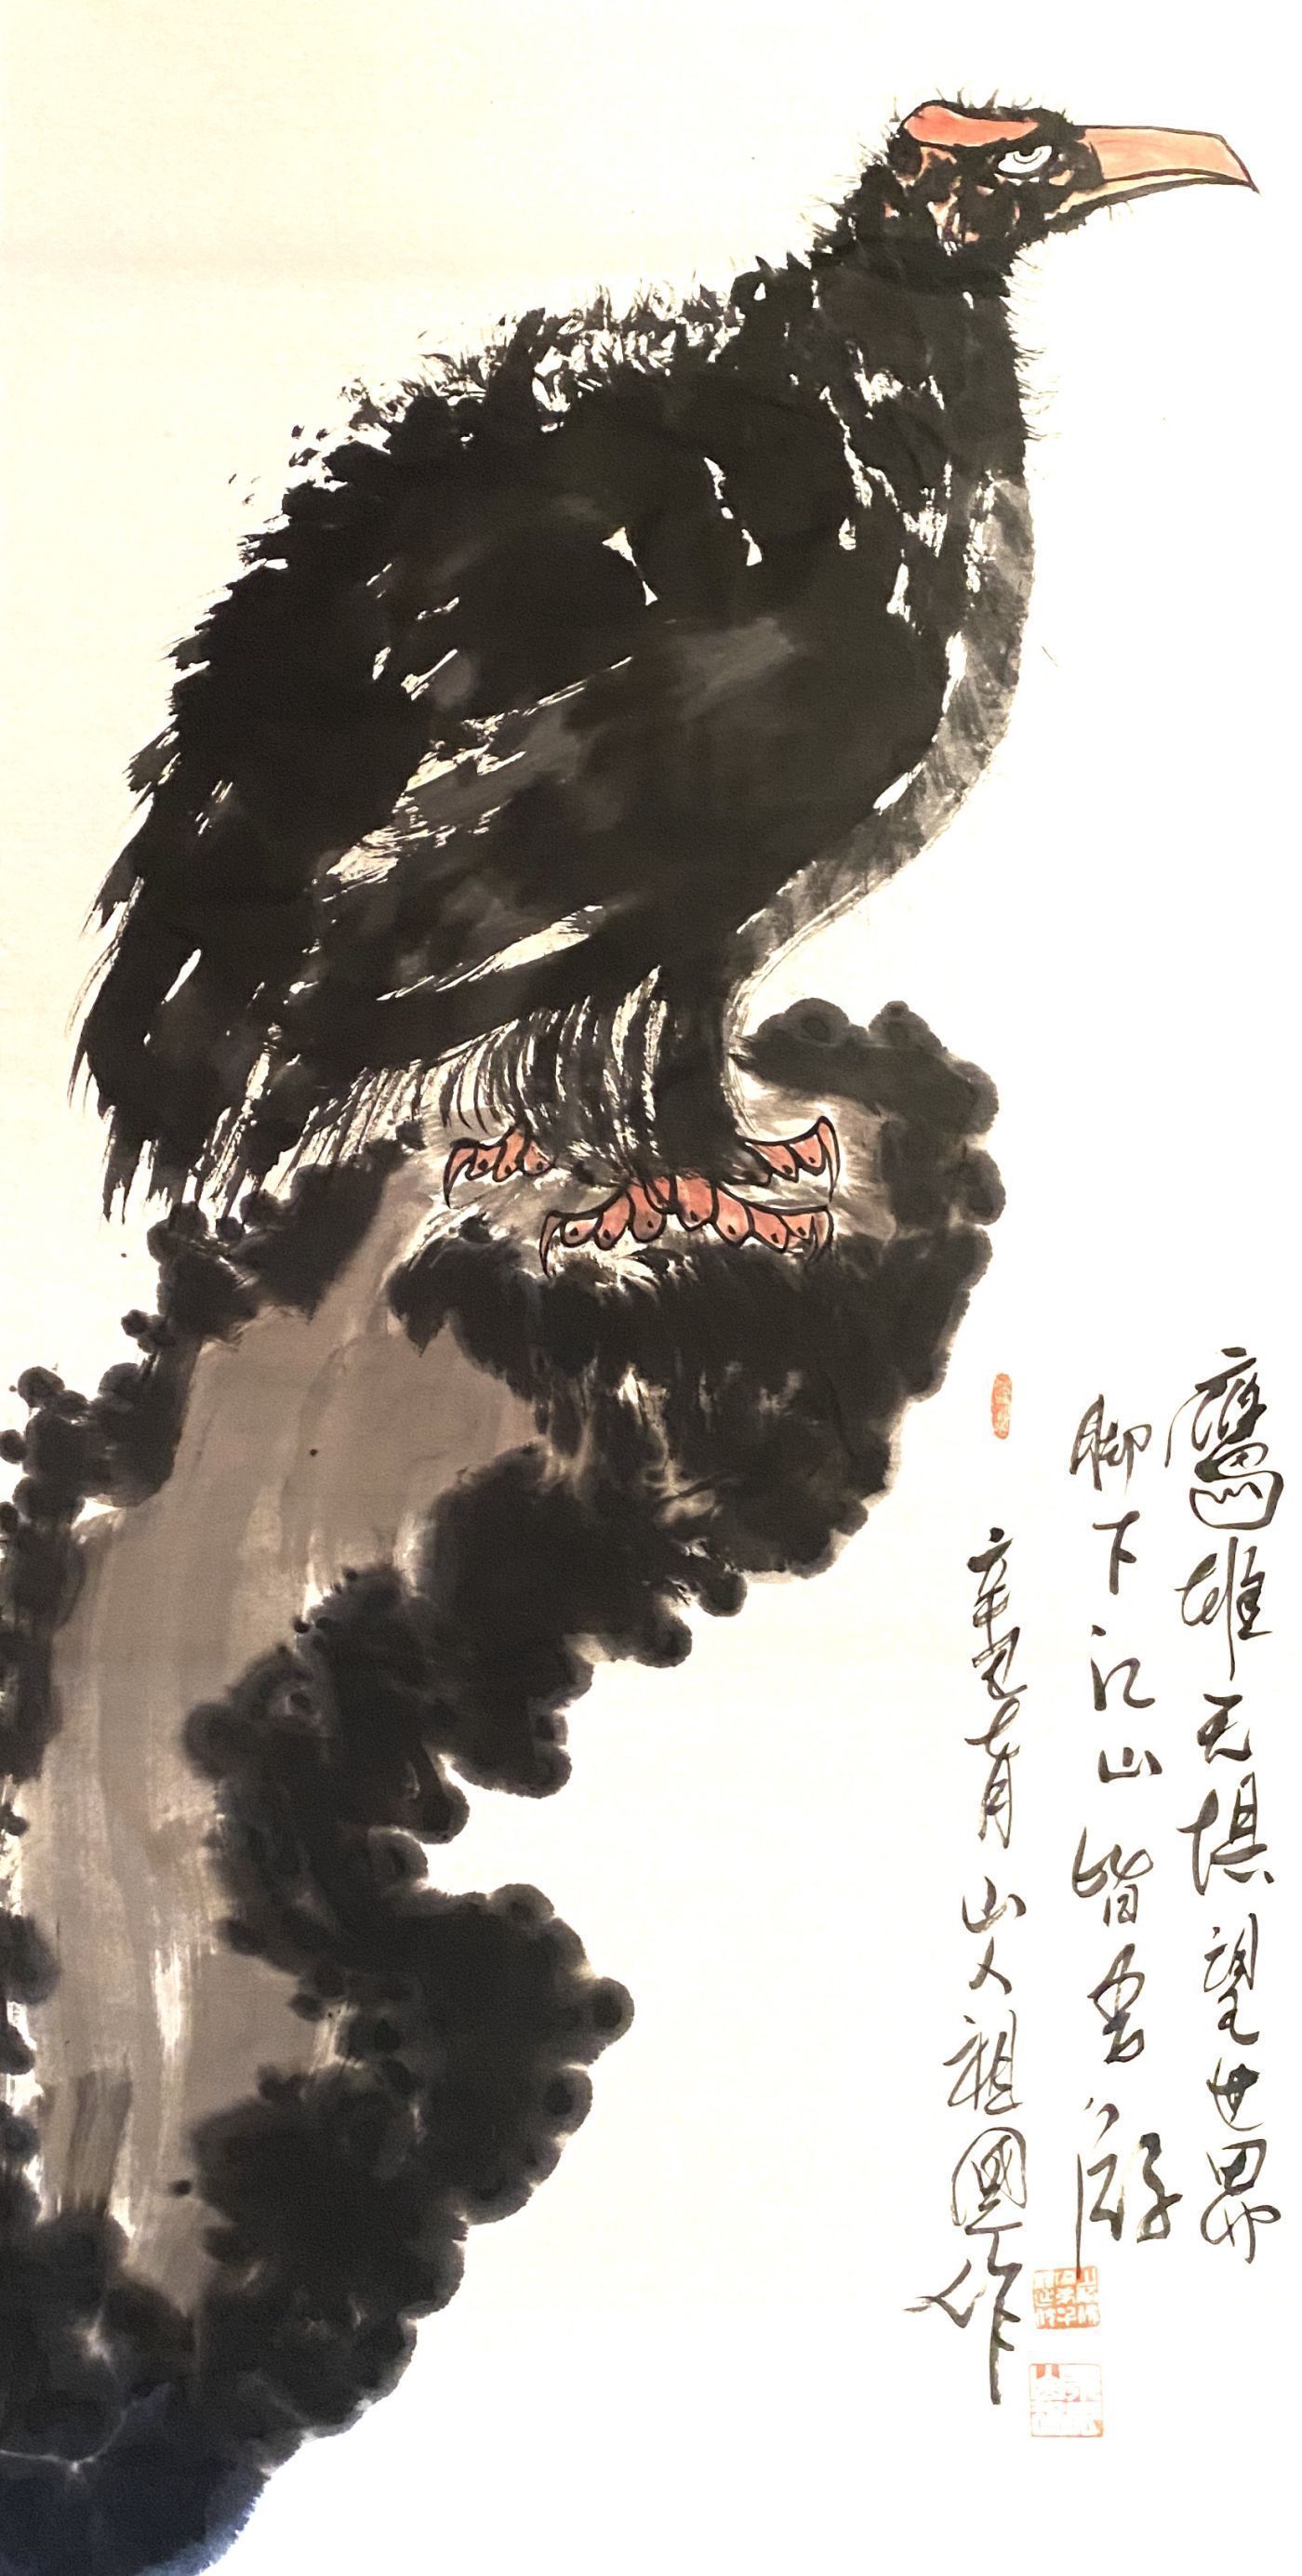 鹰雄无惧望世界
脚下江山皆画廊
辛巳七月山人祖國作